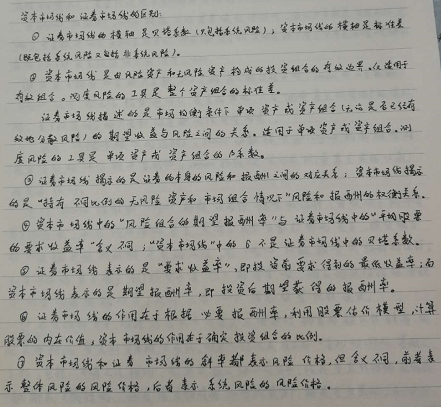 资本市场线和证券市场线的区别:
① 证券市场线的横轴是贝塔系数(只包括系统风险);资本市场线的横轴是标准差
(既包括系统风险又包括非系统风险)。
② 资本市场线是由风险资产和无风险资产构成的投资组合的有效边界。仅适用于
有效组合。测度风险的工具是整个资产组合的标准差。
证券市场线描述的是市场均衡条件下单项资产或资产组合(无论是否已经有
效地分散风险)的期望收益与风险之间的关系。适用于单项资产或资产组合。测
度风险的工具是单项资产或资产组合的β系数。
③ 证券市场线揭示的是证券的本身的风险和报酬之间的对应关系;资本市场线揭示
的是“持有不同比例的无风险资产和市场组合情况下”风险和报酬的权衡关系。
④ 资本市场线中的“风险组合的期望报酬率”与证券市场线中的“平均股票
的要求收益率”含义不同;“资本市场线”中的σ不是证券市场线中的贝塔系数。
⑤ 证券市场线表示的是“要求收益率”,即投资前要求得到的最低收益率;而
资本市场线表示的是期望报酬率,即投资后期望获得的报酬率。
⑥ 证券市场线的作用在于根据必要报酬率,利用股票估价模型,计算
股票的内在价值,资本市场线的作用在于确定投资组合的比例。
⑦ 资本市场线和证券市场线的斜率都表示风险价格,但含义不同,前者表
示整体风险的风险价格,后者表示系统风险的风险价格。